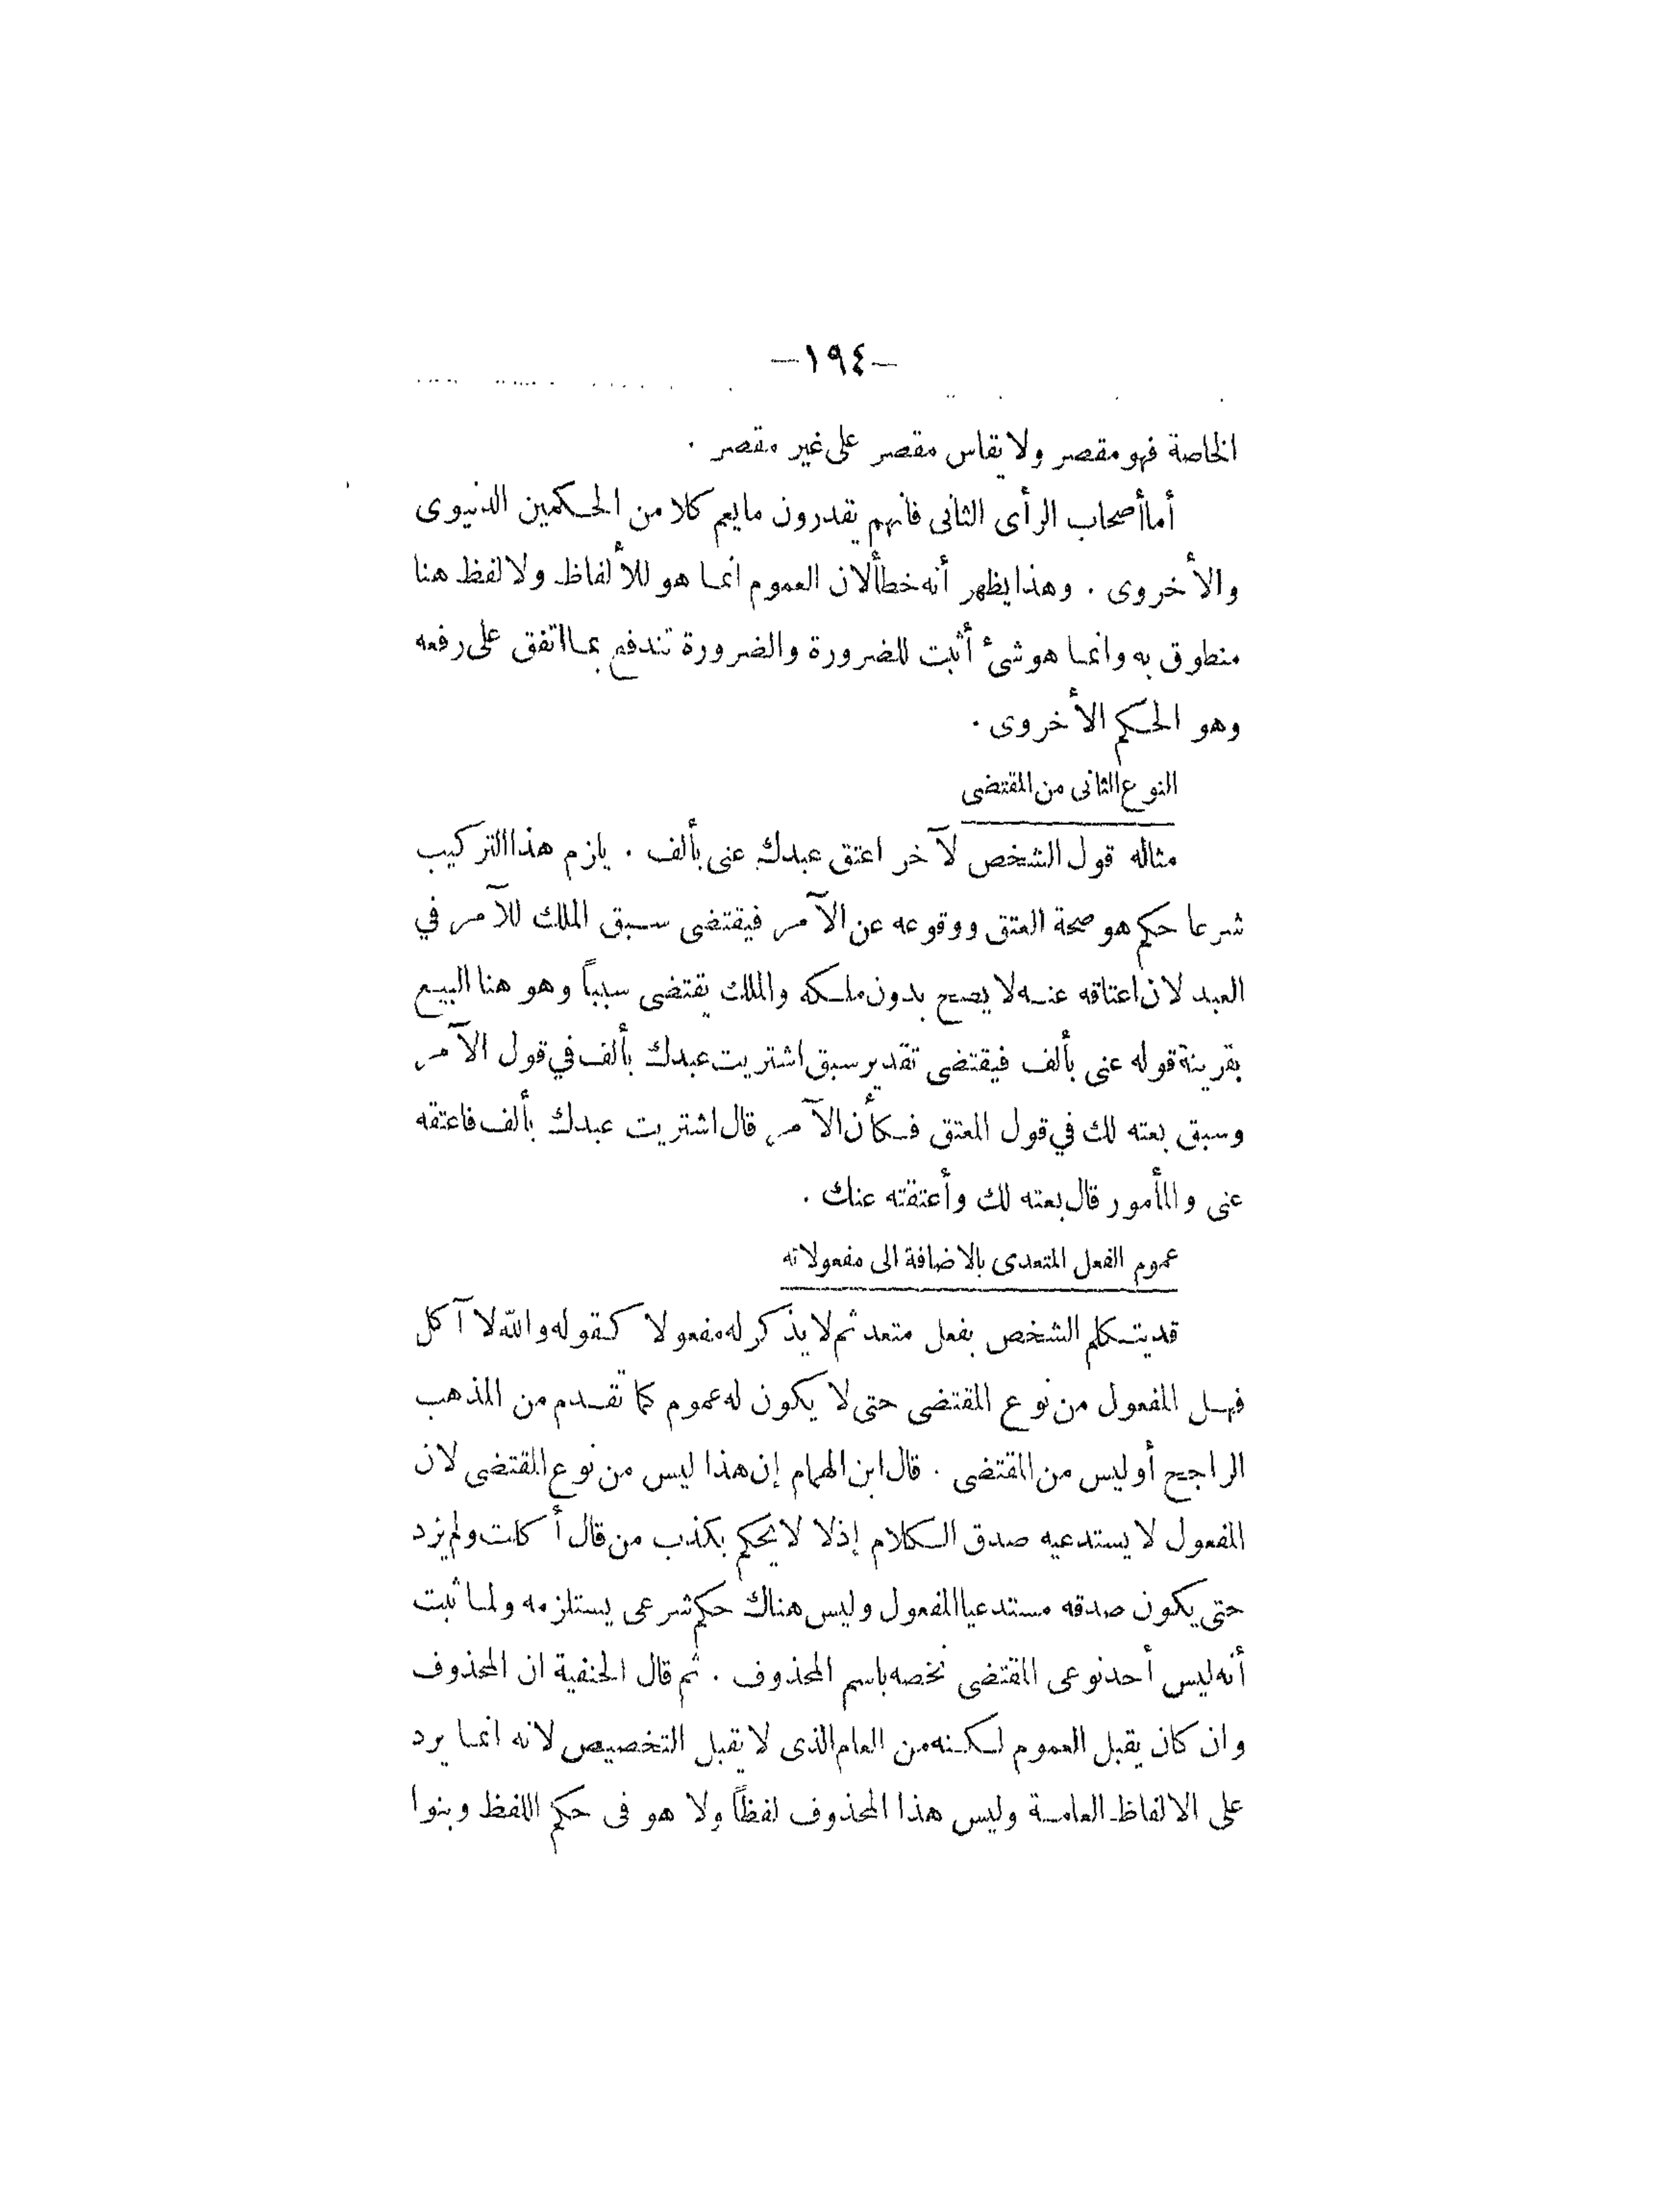 —١٩٤—
الخاصة فهو مقصر ولا يقاس مقصر على غير مقصر .
أما أصحاب الرأى الثانى فانهم يقدرون ما يعم كلا من الحكمين الدنيوى
والأخروى . وهذا يظهر أنه خطألان العموم انما هو للألفاظ ولا لفظ هنا
منطوق به وانما هو شىء أثبت للضرورة والضرورة تندفع بما اتفق على رفعه
وهو الحكم الأخروى .
النوع الثانى من المقتضى
مثاله قول الشخص لآخر اعتق عبدك عنى بألف . يلزم هذا التركيب
شرعا حكم هو صحة العتق ووقوعه عن الآمر فيقتضى سبق الملك للآمر في
العبد لان اعتاقه عنه لا يصح بدون ملكه والملك يقتضى سبباً وهو هنا البيع
بقرينة قوله عنى بألف فيقتضى تقدير سبق اشتريت عبدك بألف في قول الآمر
وسبق بعته لك في قول المعتق فكأن الآمر قال اشتريت عبدك بألف فاعتقه
عنى والمأمور قال بعته لك وأعتقته عنك .
عموم الفعل المتعدى بالاضافة الى مفعولاته
قد يتكلم الشخص بفعل متعد ثم لا يذكر له مفعولا كقوله والله لا آكل
فهل المفعول من نوع المقتضى حتى لا يكون له عموم كما تقدم من المذهب
الراجح أو ليس من المقتضى . قال ابن الهمام إن هذا ليس من نوع المقتضى لان
المفعول لا يستدعيه صدق الكلام إذلا لا يحكم بكذب من قال أكلت ولم يزد
حتى يكون صدقه مستدعيا المفعول وليس هناك حكم شرعى يستلزمه ولما ثبت
أنه ليس أحد نوعى المقتضى نخصه باسم المحذوف . ثم قال الحنفية ان المحذوف
وان كان يقبل العموم لكنه من العام الذى لا يقبل التخصيص لانه انما يرد
على الالفاظ العامة وليس هذا المحذوف لفظاً ولا هو فى حكم اللفظ وبنوا